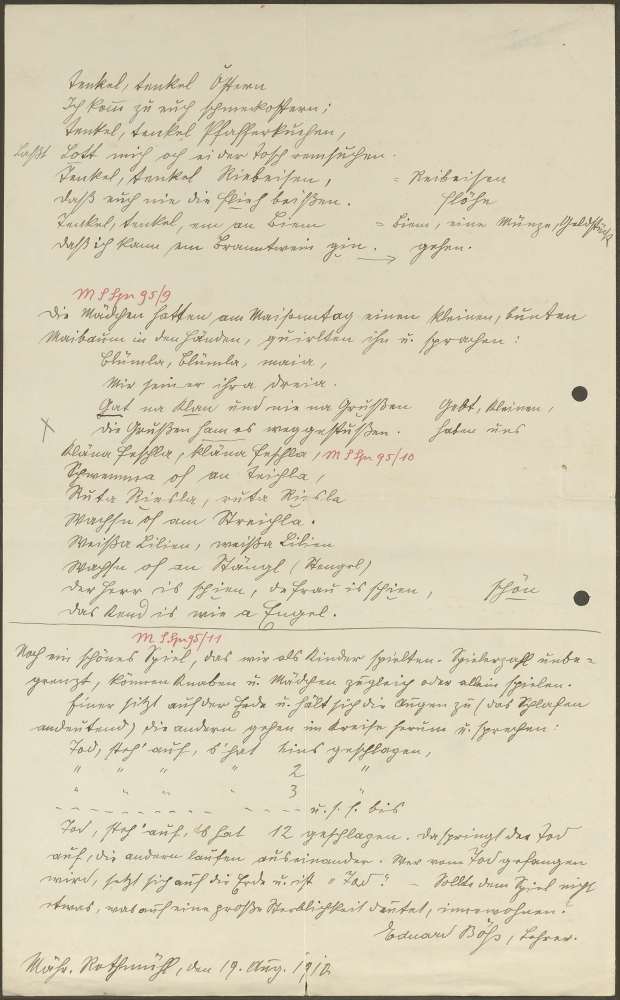 Tenkel, tenkel Ostern
Ich kom̅ zu euch schmeckostern;
Tenkel, tenkel Pfafferkuchen,
Laßt Lott mich och ei der Tosch remsuchen.
Tenkel, tenkel Riebeisen, = Reibeisen
daß euch nie die Flieh beißen. Flöhe
Tenkel, tenkel, em an Biem = Biem, eine Münze, Geldstück
daß ich kann em Branntwein gin. → gehen.
M S Spr 95/9
Die Mädchen hatten am Maisonntag einen kleinen, bunten
Maibaum in den Händen, quirlten ihn u. sprachen:
Blümla, Blümla, maia,
Wir sein er ihra dreia.
Gat na klan und nie na Grußen Gebt, kleinen,
die Grußen ham es weggestußen. haben uns
Kläna Feschla, kläna Feschla, M S Spr 95/10
Schwemma of an Teichla,
Ruta Riesla, ruta Riesla
Wachsn of am Streichla.
Weißa Lilien, weißa Lilien
Wachsn of an Stängl (Stengel)
Der Herr is schien, de Frau is schien, schön
Das Kend is wie a Engel.
M. S Spr 95/11
Noch ein schönes Spiel, das wir als Kinder spielten. Spielerzahl unbe=
grenzt, können Knaben u. Mädchen zugleich oder allein spielen.
Einer sitzt auf der Erde u. hält sich die Augen zu (das Schlafen
andeutend) die andern gehen im Kreise herum u. sprechen:
Tod, steh' auf, 's hat eins geschlagen,
" " " " 2 "
" " " " 3 "
– – – – – – – – – – – u. s. f. bis
Tod, steh' auf, 's hat 12 geschlagen. Da springt der Tod
auf, die andern laufen auseinander. Wer vom Tod gefangen
wird, setzt sich auf die Erde u. ist "Tod". – Sollte dem Spiel nicht
etwas, was auf eine große Sterblichkeit deutet, innewohnen?
Eduard Böhs, Lehrer.
Mähr. Rothmühl, den 19. Aug. 1912